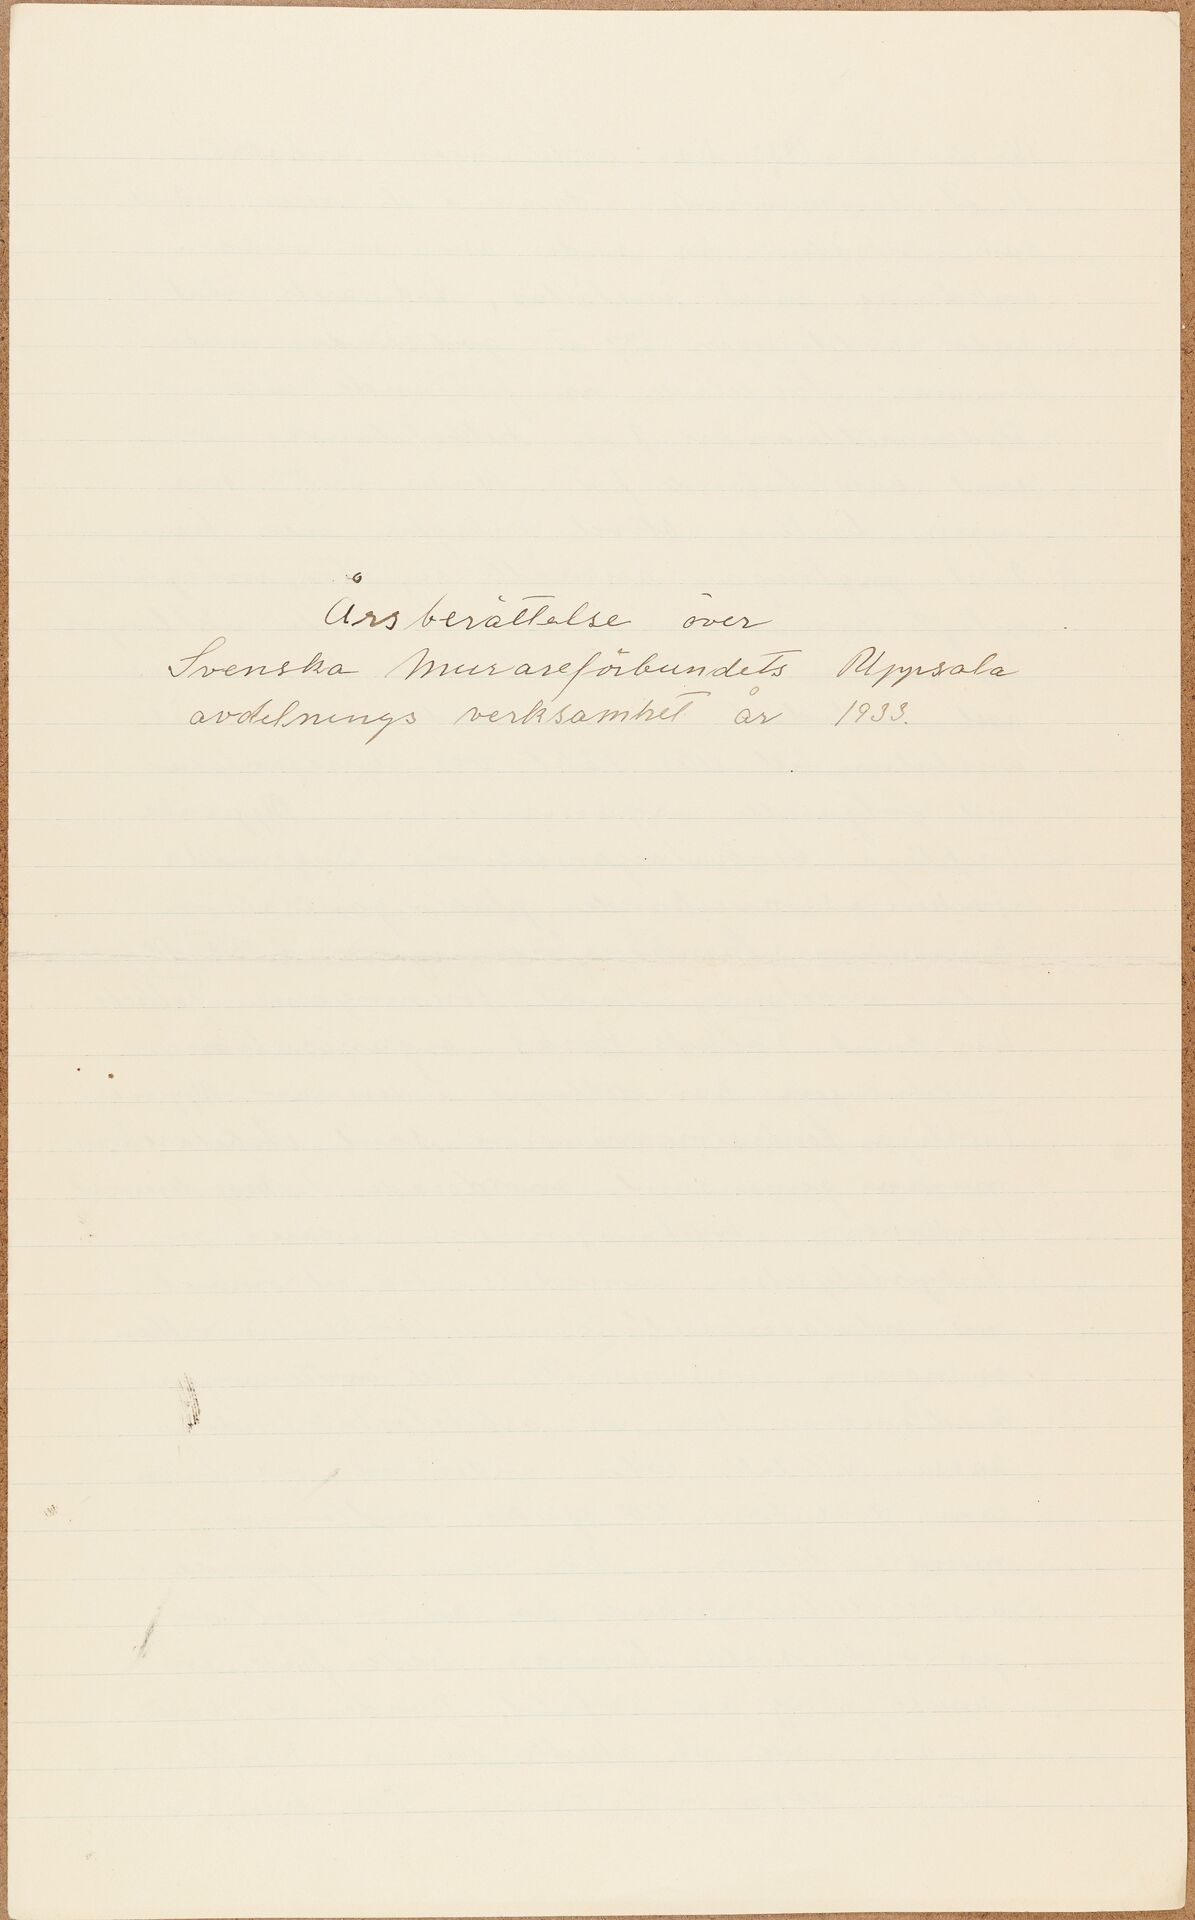 Årsberättelse över
Svenska Murareförbundets Uppsala
avdelnings verksamhet år 1933.